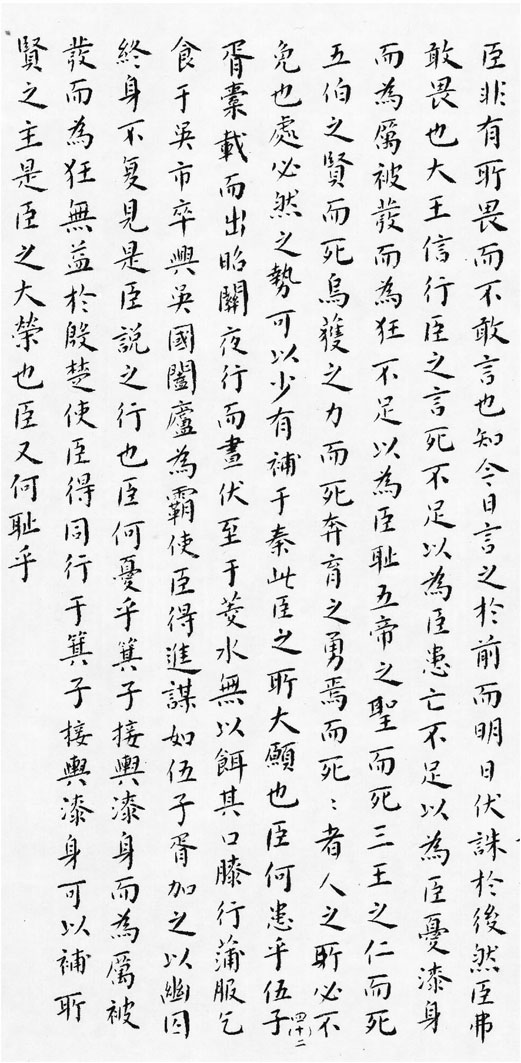 臣非有所畏而不敢言也知今日言之於前而明日伏誅於後然臣弗
敢畏也大王信行臣之言死不足以為臣患亡不足以為臣憂漆身
而為厲被髮而為狂不足以為臣恥五帝之聖而死三王之仁而死
五伯之賢而死烏獲之力而死奔育之勇焉而死：者人之所必不
免也處必然之勢可以少有補于秦此臣之所大願也臣何患乎伍子
胥橐載而出昭關夜行而晝伏至于菱水無以餌其口膝行蒲服乞
食于吳市卒興吳國闔廬為霸使臣得進謀如伍子胥加之以幽囚
終身不复見是臣說之行也臣何憂乎箕子接輿漆身而為厲被
髮而為狂無益於殷楚使臣得同行于箕子接輿漆身可以補所
賢之主是臣之大榮也臣又何恥乎
四十二